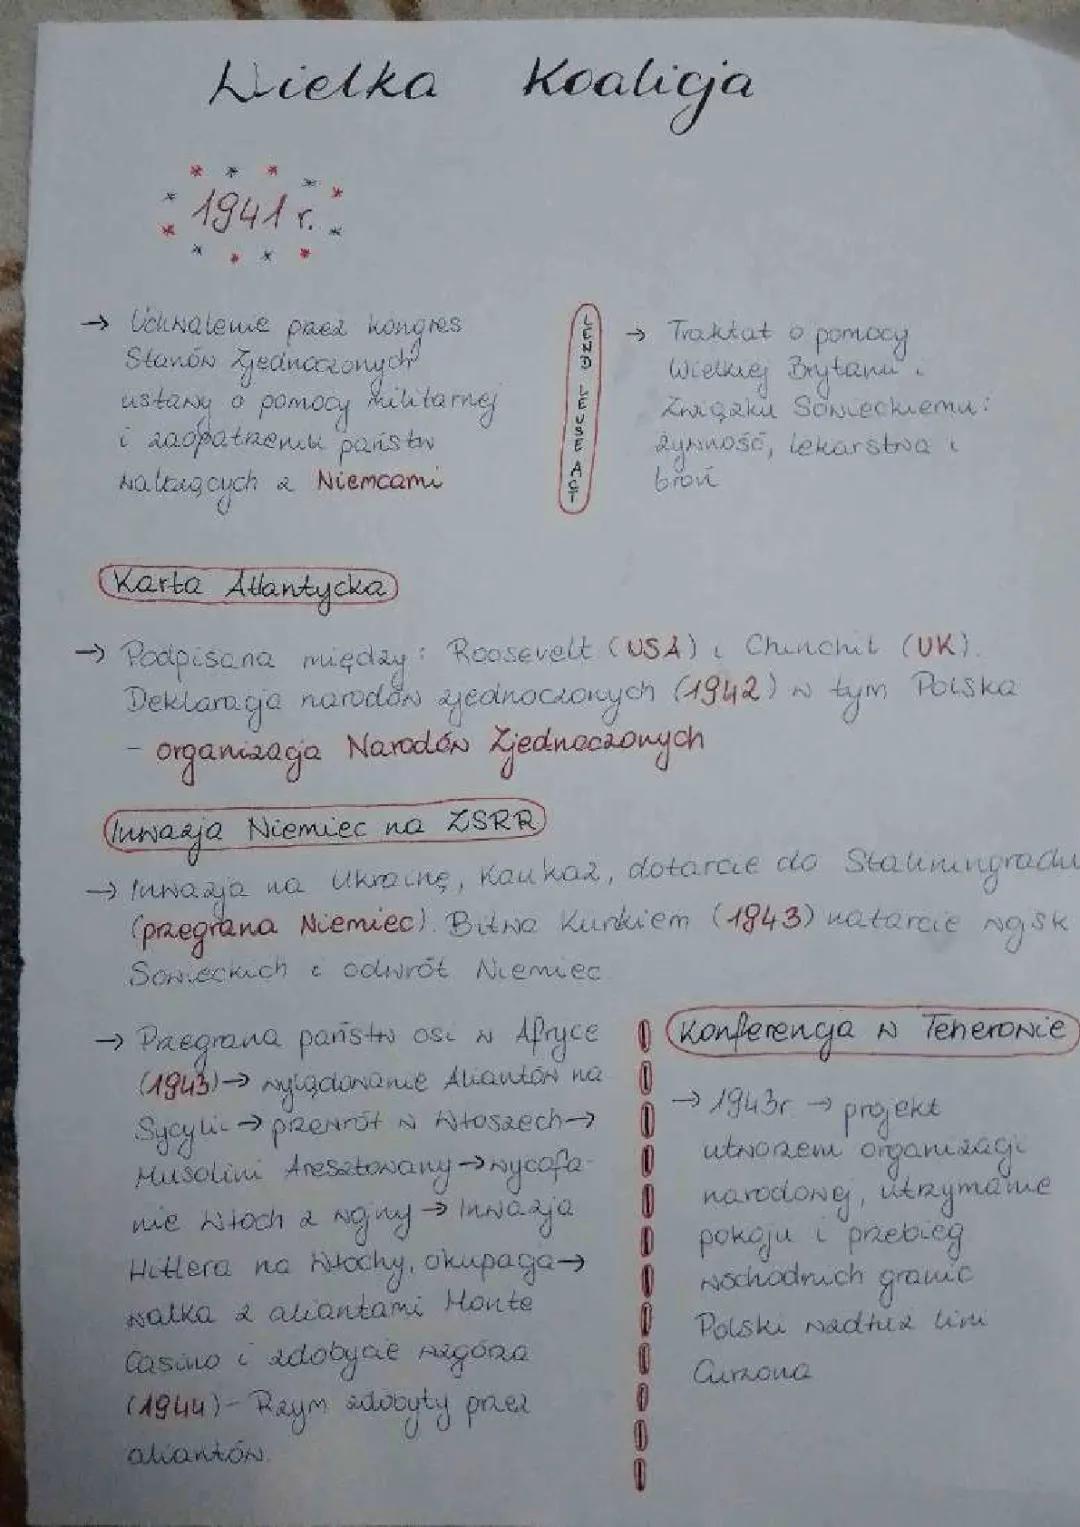 Wielka Koalicja
1941 r.
→ Uchwalenie przez kongres
Stanów Zjednoczonych
ustawy o pomocy militarnej
i zaopatrzeniu państw
walczących z Niemcami
LEND LEUSE ACT
→ Traktat o pomocy
Wielkiej Brytanii i
Związku Sowieckiemu:
żywność, lekarstwa i
broń
Karta Atlantycka
→ Podpisana między: Roosevelt (USA) i Churchil (UK).
Deklaracja narodów zjednoczonych (1942) w tym Polska
- organizacja Narodów Zjednoczonych
Inwazja Niemiec na ZSRR
→ Inwazja na Ukrainę, Kaukaz, dotarcie do Stalingradu
(przegrana Niemiec). Bitwa Kurskiem (1943) natarcie wojsk
Sowieckich i odwrót Niemiec
→ Przegrana państw osi w Afryce
(1943) → wylądowanie Aliantów na
Sycylii → przewrót w Włoszech →
Musolini Aresztowany → wycofa-
nie Włoch z wojny → Inwazja
Hitlera na Włochy, okupacja →
walka z aliantami Monte
Casino i zdobycie wzgórza
(1944) - Rzym zdobyty przez
aliantów.
Konferencja w Teheronie
→ 1943r → projekt
utworzeni organizacji
narodowej, utrzymanie
pokoju i przebieg
wschodnich granic
Polski wzdłuż lini
Curzona